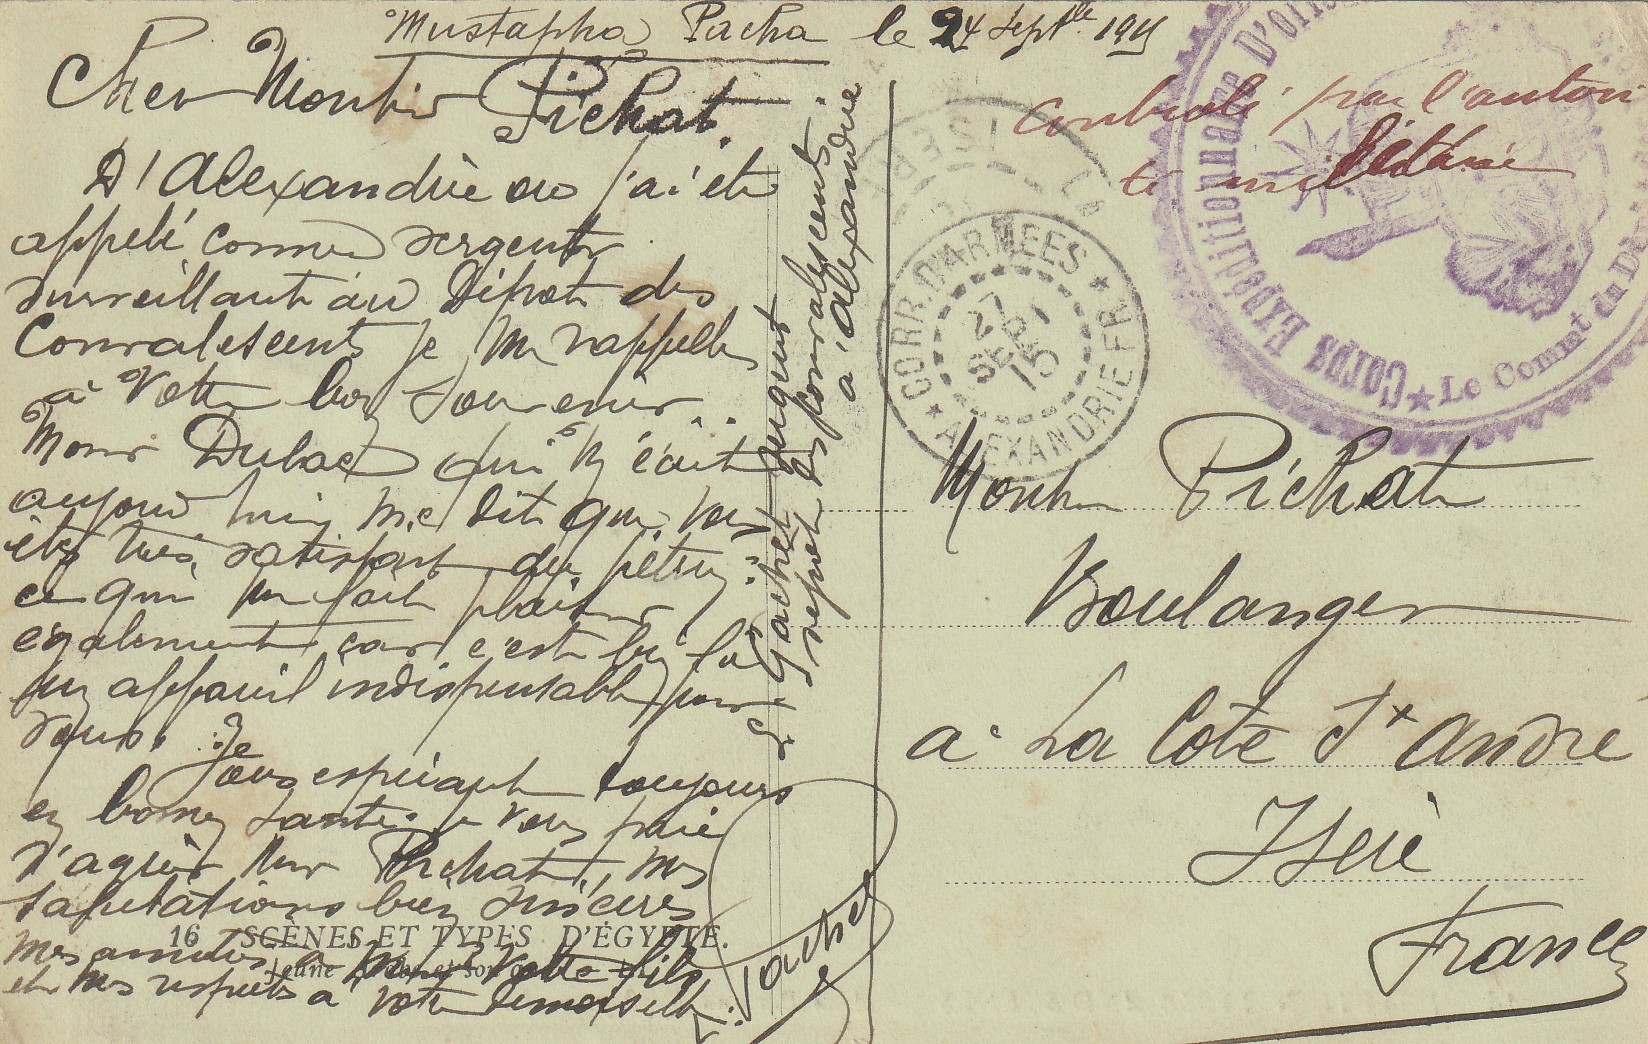 Mustapha Pacha le 24 Septbre 1915
Cher Monsieur Pichat.
D'Alexandrie ou j'ai ete
appelé comme sergent
surveillant au Dépot des
Convalescents je me rappelle
à votre bon souvenir..
Monsr Dubac qui m'écrit
aujourd'hui me dit que vous
êtes très satisfait du pétrin
ce qui me fait plaisir
également car c'est bien là
un appareil indispensable pour
vous.
Je
vous espérant toujours
en bonne santé. je vous prie
d'agréer Mr Pichat, mes
salutations bien sincères
mes amitiés à votre fils
et mes respects à votre demoiselle
Gachet
Gachet sergent
Depot des convalescents
a Alexandrie
16 SCÈNES ET TYPES D'ÉGYPTE.
Jeune
Controlé par l'autori
té militaire
Corps Expeditionnaire D'Orient
★ Le Commt du Dépot
ISERE
LA
CORR. D'ARMEES
★ ALEXANDRIE FR ★
27
SEPT
15
Monsieur Pichat
Boulanger
a La Côte St André
Isère
France